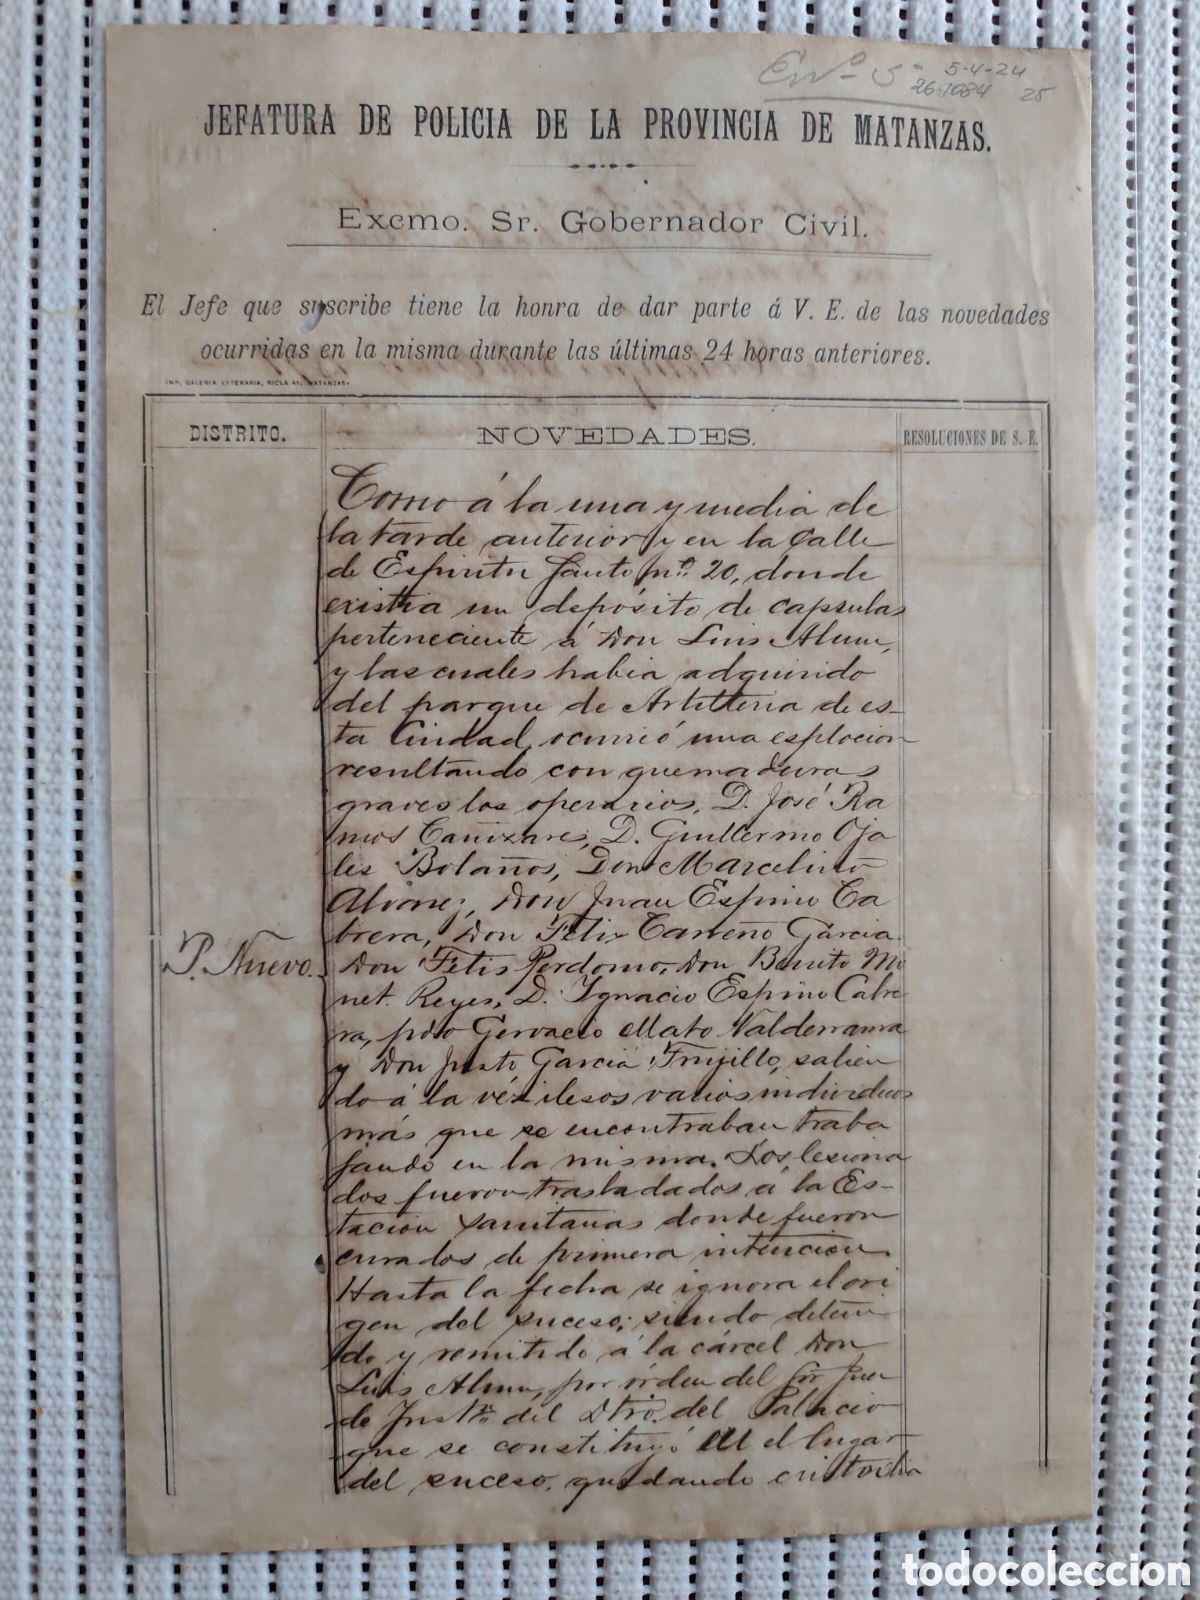 5-4-24
26-1084 25
JEFATURA DE POLICIA DE LA PROVINCIA DE MATANZAS.
Excmo. Sr. Gobernador Civil.
El Jefe que suscribe tiene la honra de dar parte á V. E. de las novedades
ocurridas en la misma durante las últimas 24 horas anteriores.
IMP. GALERIA LITERARIA, RICLA 41, MATANZAS.
DISTRITO. NOVEDADES. RESOLUCIONES DE S. E.
Como á la una y media de
la tarde anterior y en la Calle
de Espiritu Santo nº 20, donde
existia un depósito de capsulas
perteneciente á Don Luis Alum,
y las cuales habia adquirido
del parque de Artilleria de es-
ta Ciudad, ocurrió una esplocion
resultando con quemaduras
graves los operarios, D. José Ra
mos Cañizares, D. Guillermo Oja
les Bolaños, Don Marcelino
Alvarez, Don Juan Espino Ca
brera, Don Felix Carreño Garcia
Don Felis Perdomo, Don Benito Mo
net Reyes, D. Ignacio Espino Cabre
ra, pdo Gervacio Mato Valderrama
y Don Justo Garcia Trujillo, salien
do á la véz ilesos varios individuos
más que se encontraban traba
jando en la misma. Los lesiona
dos fueron trasladados á la Es-
tacion Sanitarias donde fueron
curados de primera intencion.
Hasta la fecha se ignora el ori
gen del suceso; siendo deteni
do y remitido á la cárcel Don
Luis Alum, por órden del Sor Juez
de Instn del Dtro. del Palacio
que se constituyó en el lugar
del suceso, quedando custodia
P. Nuevo.
todocoleccion